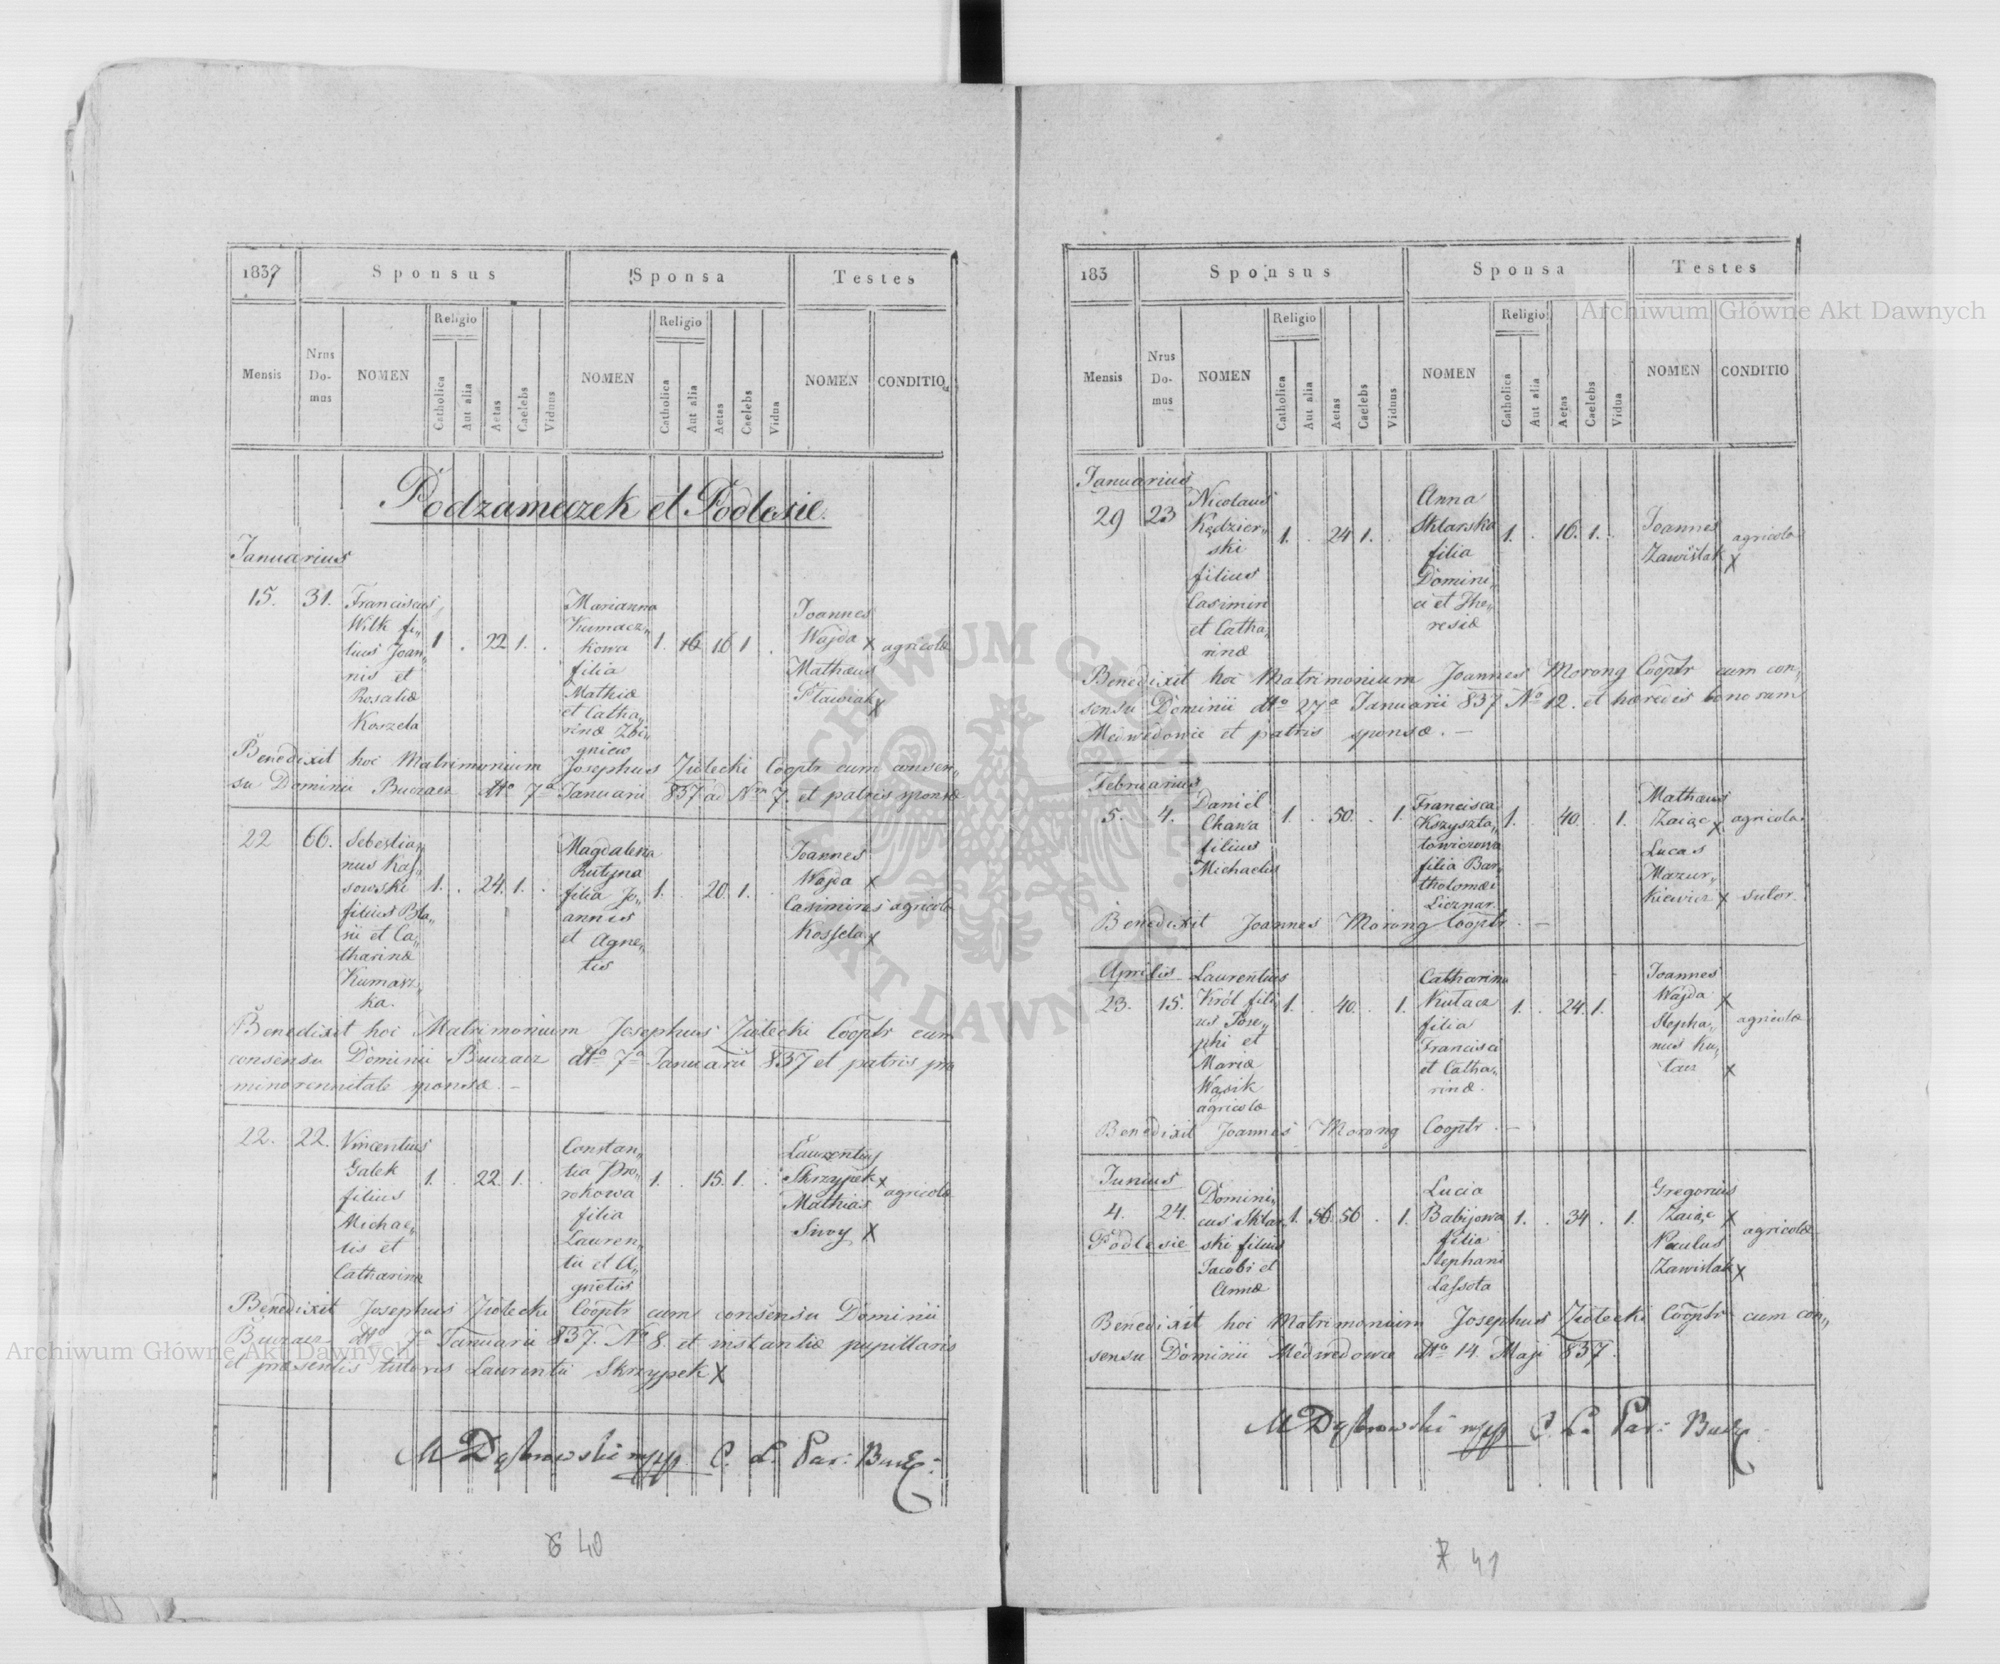 1837
Sponsus
Sponsa
Testes
Mensis
Nrus Do- mus
NOMEN
Religio
Catholica
Aut alia
Aetas
Caelebs
Viduus
NOMEN
Religio
Catholica
Aut alia
Aetas
Caelebs
Vidua
NOMEN
CONDITIO
Podzameczek et Podlesie.
Januarius
15. 31.
Franciscus
Wilk fi„
lius Joan„
nis et
Rosaliæ
Koszela
1 . 22 1. .
Marianna
Kumacz„
kowa
filia
Mathiæ
et Catha„
rinæ Zbi„
gniew
1. 16 16 1 .
Joannes
Wajda x
Mathæus
Pławiak x
agricolæ
Benedixit hoc Matrimonium Josephus Ziołecki Cooptr cum consen„
su Dominii Buczacz dtto 7a Januarii 837 ad Nrm 7. et patris sponsæ
22 66.
Sebestia„
nus Kas„
sowski
filius Bła„
sii et Ca„
tharinæ
Kumacz„
ka.
1. . 24. 1. .
Magdalena
Rutyna
filia Jo„
annis
et Agne„
tis
1. 20 1. .
Joannes
Wajda x
Casimirus
Kossela x
agricolæ
Benedixit hoc Matrimonium Josephus Ziołecki Cooptr cum
consensu Dominii Buczacz dtto 7a Januarii 837 et patris pro
minorennitate sponsæ. –
22. 22.
Vincentius
Galek
filius
Michae„
lis et
Catharinæ
1. . 22 1. .
Constan„
tia Pro„
rokowa
filia
Lauren„
tii et A„
gnetis
1. . 15. 1. .
Laurentius
Skrzypek x
Mathias
Siwy x
agricolæ
Benedixit Josephus Ziołecki Cooptr cum consensu Dominii
Buczacz dtto 7a Januarii 837. No 8. et instantiæ pupillaris
et præsentis tutoris Laurentii Skrzypek x
M Dąbrowski mpp C. L. Par: Bucz:
40
183
Sponsus
Sponsa
Testes
Mensis
Nrus Do- mus
NOMEN
Religio
Catholica
Aut alia
Aetas
Caelebs
Viduus
NOMEN
Religio
Catholica
Aut alia
Aetas
Caelebs
Vidua
NOMEN
CONDITIO
Januarius
29 23
Nicolaus
Kędzier„
ski
filius
Casimiri
et Catha„
rinæ
1. . 24 1. .
Anna
Sklarska
filia
Domini„
ci et The„
resiæ
1. . 16. 1. .
Joannes
Zawiślak x
agricola
Benedixit hoc Matrimonium Joannes Morong Cooptr cum con„
sensu Dominii dtto 27a Januarii 837 No 12. et hæredis bonorum
Medwedowce et patris sponsæ. –
Februarius
5. 4.
Daniel
Chawa
filius
Michaelis
1. . 50. . 1.
Francisca
Krzyszta„
towiczowa
filia Bar„
tholomæi
Licznar.
1. . 40. . 1.
Mathæus
Zając x
agricola.
Lucas
Mazur„
kiewicz x
sutor.
Benedixit Joannes Morong Cooptr. –
Aprilis
23. 15.
Laurentius
Król fili„
us Jose„
phi et
Mariæ
Wąsik
agricolæ
1. . 40. . 1.
Catharina
Kutacz
filia
Francisci
et Catha„
rinæ.
1. . 24 1. .
Joannes
Wajda x
Stepha„
nus Ku„
tacz x
agricolæ
Benedixit Joannes Morong Cooptr. –
Junius
4. 24.
Podlesie
Domini„
cus Sklar„
ski filius
Jacobi et
Annæ
1. 56 56 . 1.
Lucia
Babijowa
filia
Stephani
Lassota
1. . 34 . 1.
Gregorius
Zając x
Paulus
Zawislak x
agricolæ
Benedixit hoc Matrimonium Josephus Ziołecki Cooptr cum con„
sensu Dominii Medwedowce dtto 14. Maji 837.
M Dąbrowski mpp C. L. Par: Bucz:
41
Archiwum Główne Akt Dawnych
Archiwum Główne Akt Dawnych
ARCHIWUM GŁÓWNE AKT DAWNYCH